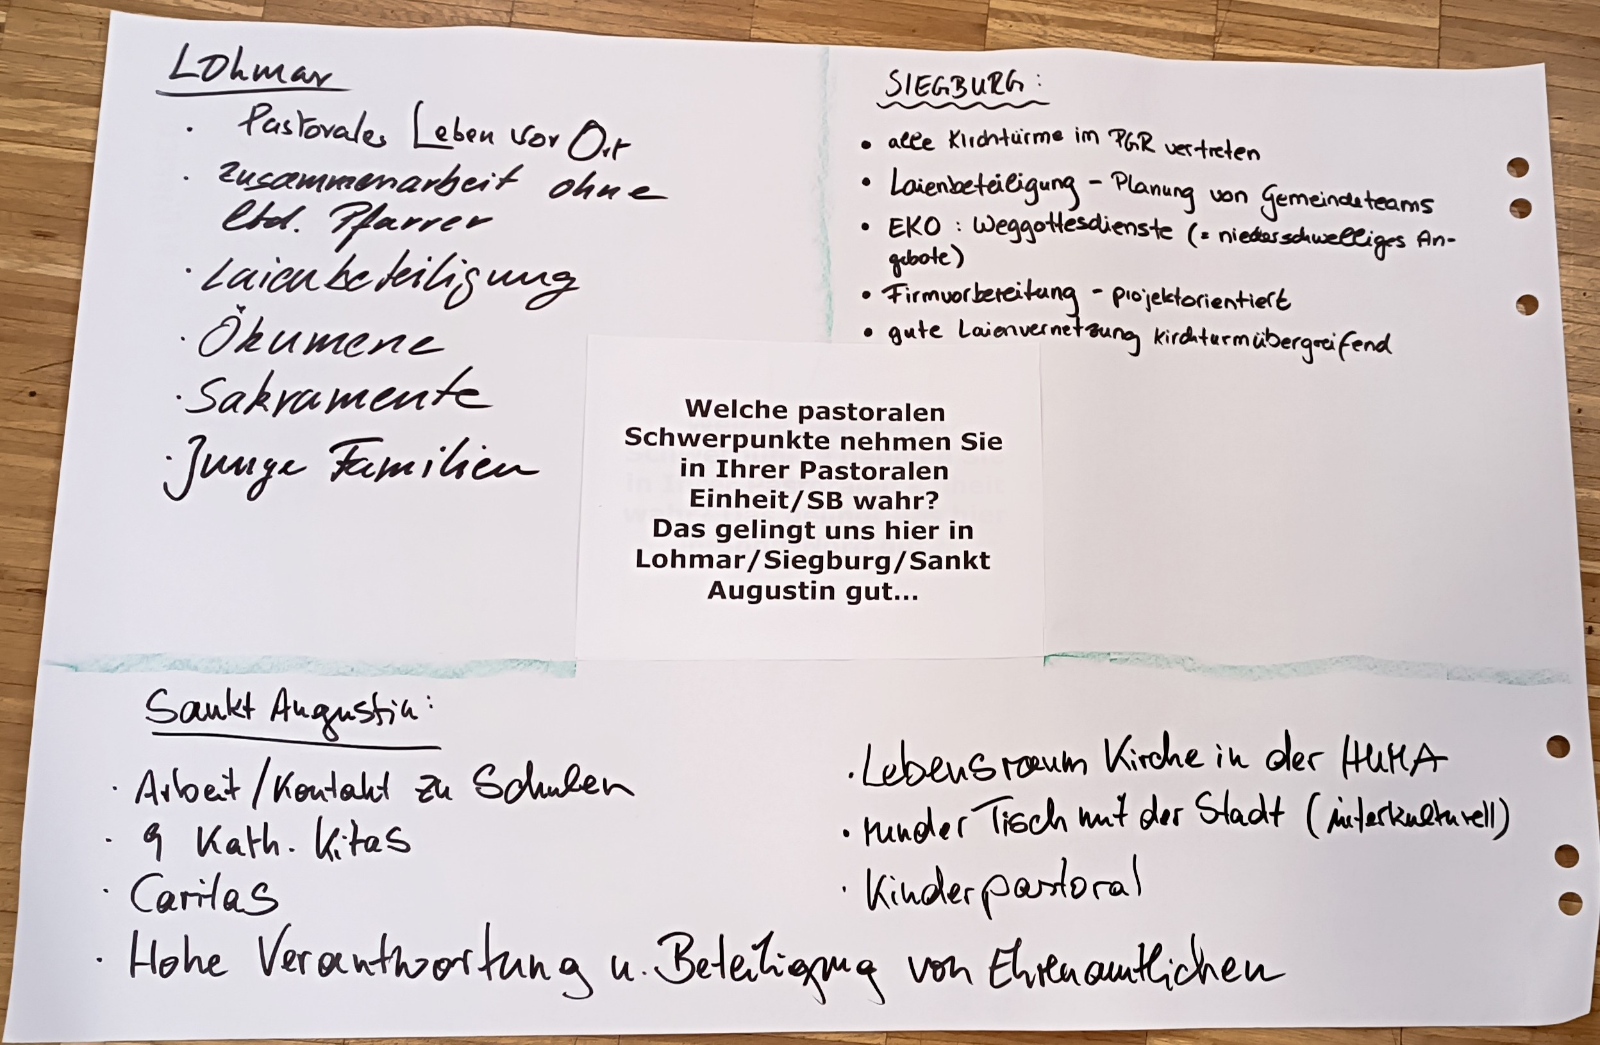 Lohmar
· Pastorales Leben vor Ort
· Zusammenarbeit ohne
ltd. Pfarrer
· Laienbeteiligung
· Ökumene
· Sakramente
· Junge Familien
SIEGBURG:
• alle Kirchtürme im PGR vertreten
• Laienbeteiligung - Planung von Gemeindeteams
• EKO : Weggottesdienste (= niederschwelliges An-
gebote)
• Firmvorbereitung - projektorientiert
• gute Laienvernetzung kirchturmübergreifend
Welche pastoralen
Schwerpunkte nehmen Sie
in Ihrer Pastoralen
Einheit/SB wahr?
Das gelingt uns hier in
Lohmar/Siegburg/Sankt
Augustin gut...
Sankt Augustin:
· Arbeit/Kontakt zu Schulen
· 9 Kath. Kitas
· Caritas
· Hohe Verantwortung u. Beteiligung von Ehrenamtlichen
· Lebensraum Kirche in der HUMA
· runder Tisch mit der Stadt (interkulturell)
· Kinderpastoral